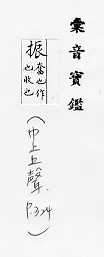 彙音寶鑑
振 奮也作
也收也
(巾上去聲.
P.324)